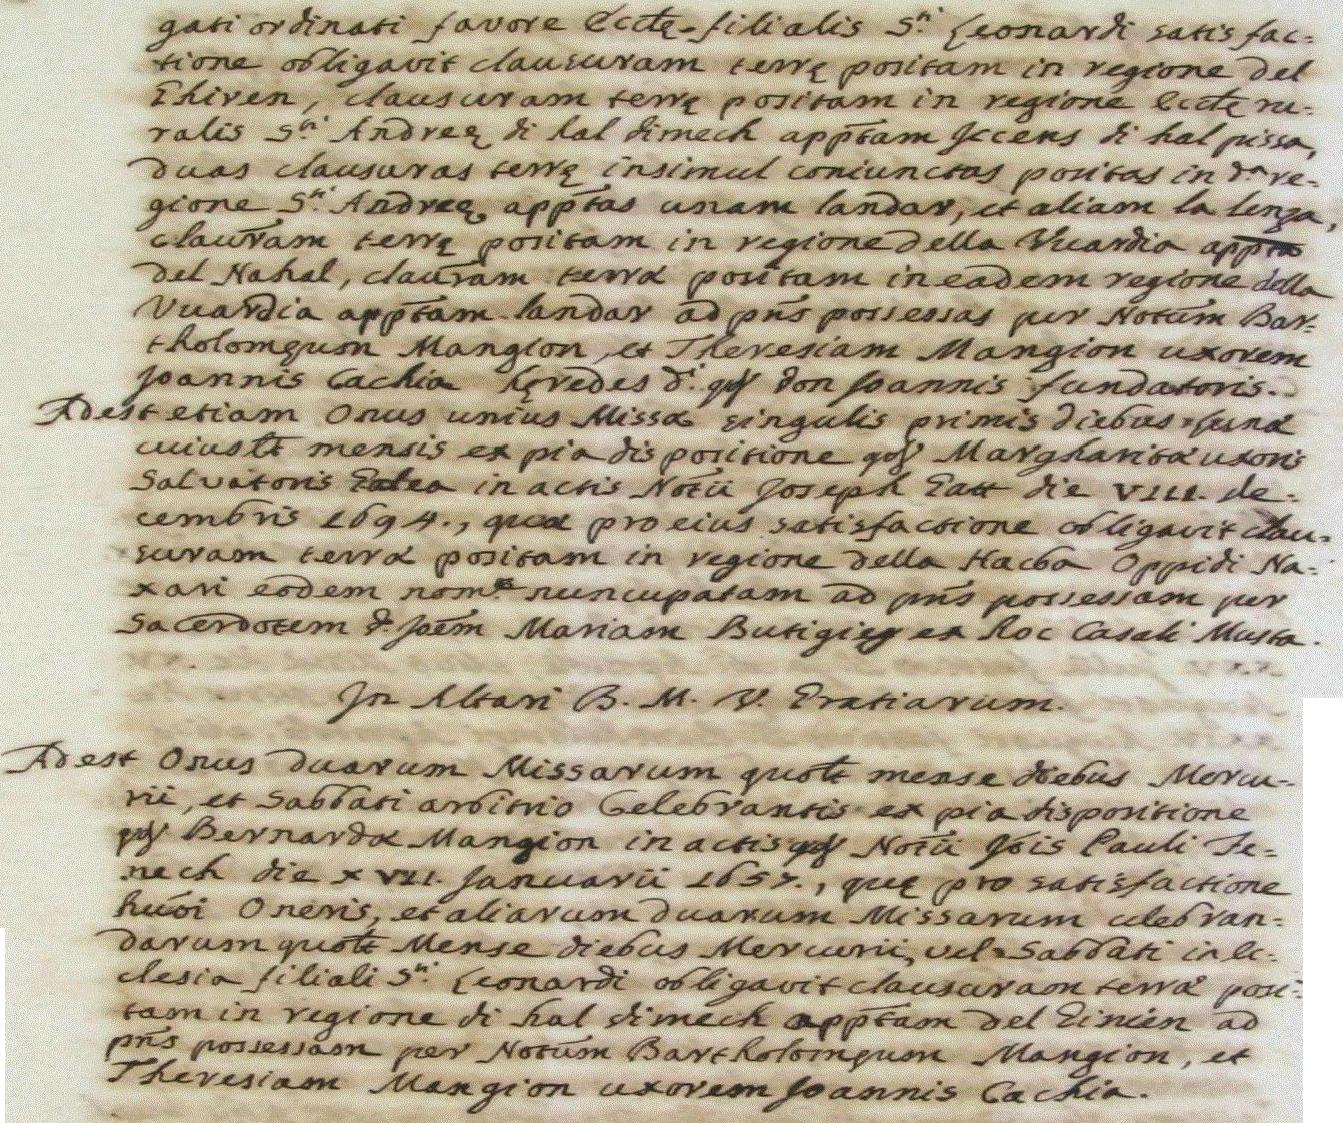 gati ordinati favore Ecctę filialis S.ⁿⁱ Leonardi satisfac-
tione obligavit clausuram terrę positam in regione del
Ghiren, clausuram terrę positam in regione Ecctę ru-
ralis S.ⁿⁱ Andreę di hal dimech app̃tam Iccens di hal pissa,
duas clausuras terrę insimul coniunctas positas in d.ᵃ re-
gione S.ⁿⁱ Andreę, app̃tas unam landar, et aliam la lenza,
clauram terrę positam in regione della Vuardia app̃ta
del Nahal, clauram terræ positam in eadem regione della
Vuardia app̃tam landar ad pñs possessas per Notũm Bar-
tholomęum Mangion, et Theresiam Mangion uxorem
Joannis Cachia hęredes d.ⁱ qđ Don Joannis fundatoris.
Adest etiam Onus unius Missæ singulis primis diebus Lunæ
cuiuslt mensis ex pia dispositione qđ Margharitæ uxoris
Salvatoris Galea in actis Notii Joseph Gatt die VIII. de-
cembris 1694., quæ pro eius satisfactione obligavit clau-
suram terræ positam in regione della Hacba Oppidi Na-
xari eodem nom.ᵉ nuncupatam ad pñs possessam per
Sacerdotem D. Joẽm Mariam Butigieg ex hoc Casali Musta.
In Altari B. M. V. Gratiarum.
Adest Onus duarum Missarum quolt mense diebus Mercu-
rii, et Sabbati arbitrio Celebrantis ex pia dispositione
qđ Bernardæ Mangion in actis qđ Notii Jõis Pauli Fe-
nech die XVII. Januarii 1657., quę pro satisfactione
huõi Oneris, et aliarum duarum Missarum celebran-
darum quolt Mense diebus Mercurii, vel Sabbati in Ec-
clesia filiali S.ⁿⁱ Leonardi obligavit clausuram terræ posi-
tam in regione di hal dimech app̃tam del Einien ad
pñs possessam per Notũm Bartholomęum Mangion, et
Theresiam Mangion uxorem Joannis Cachia.